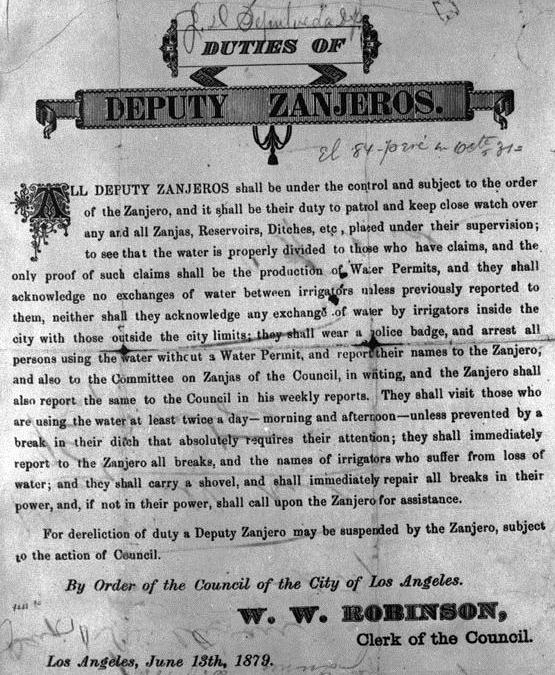 DUTIES OF
DEPUTY ZANJEROS.
ALL DEPUTY ZANJEROS shall be under the control and subject to the order
of the Zanjero, and it shall be their duty to patrol and keep close watch over
any and all Zanjas, Reservoirs, Ditches, etc, placed under their supervision;
to see that the water is properly divided to those who have claims, and the
only proof of such claims shall be the production of Water Permits, and they shall
acknowledge no exchanges of water between irrigators unless previously reported to
them, neither shall they acknowledge any exchange of water by irrigators inside the
city with those outside the city limits; they shall wear a police badge, and arrest all
persons using the water without a Water Permit, and report their names to the Zanjero,
and also to the Committee on Zanjas of the Council, in writing, and the Zanjero shall
also report the same to the Council in his weekly reports. They shall visit those who
are using the water at least twice a day—morning and afternoon—unless prevented by a
break in their ditch that absolutely requires their attention; they shall immediately
report to the Zanjero all breaks, and the names of irrigators who suffer from loss of
water; and they shall carry a shovel, and shall immediately repair all breaks in their
power, and, if not in their power, shall call upon the Zanjero for assistance.
For dereliction of duty a Deputy Zanjero may be suspended by the Zanjero, subject
to the action of Council.
By Order of the Council of the City of Los Angeles.
W. W. ROBINSON,
Clerk of the Council.
Los Angeles, June 13th, 1879.